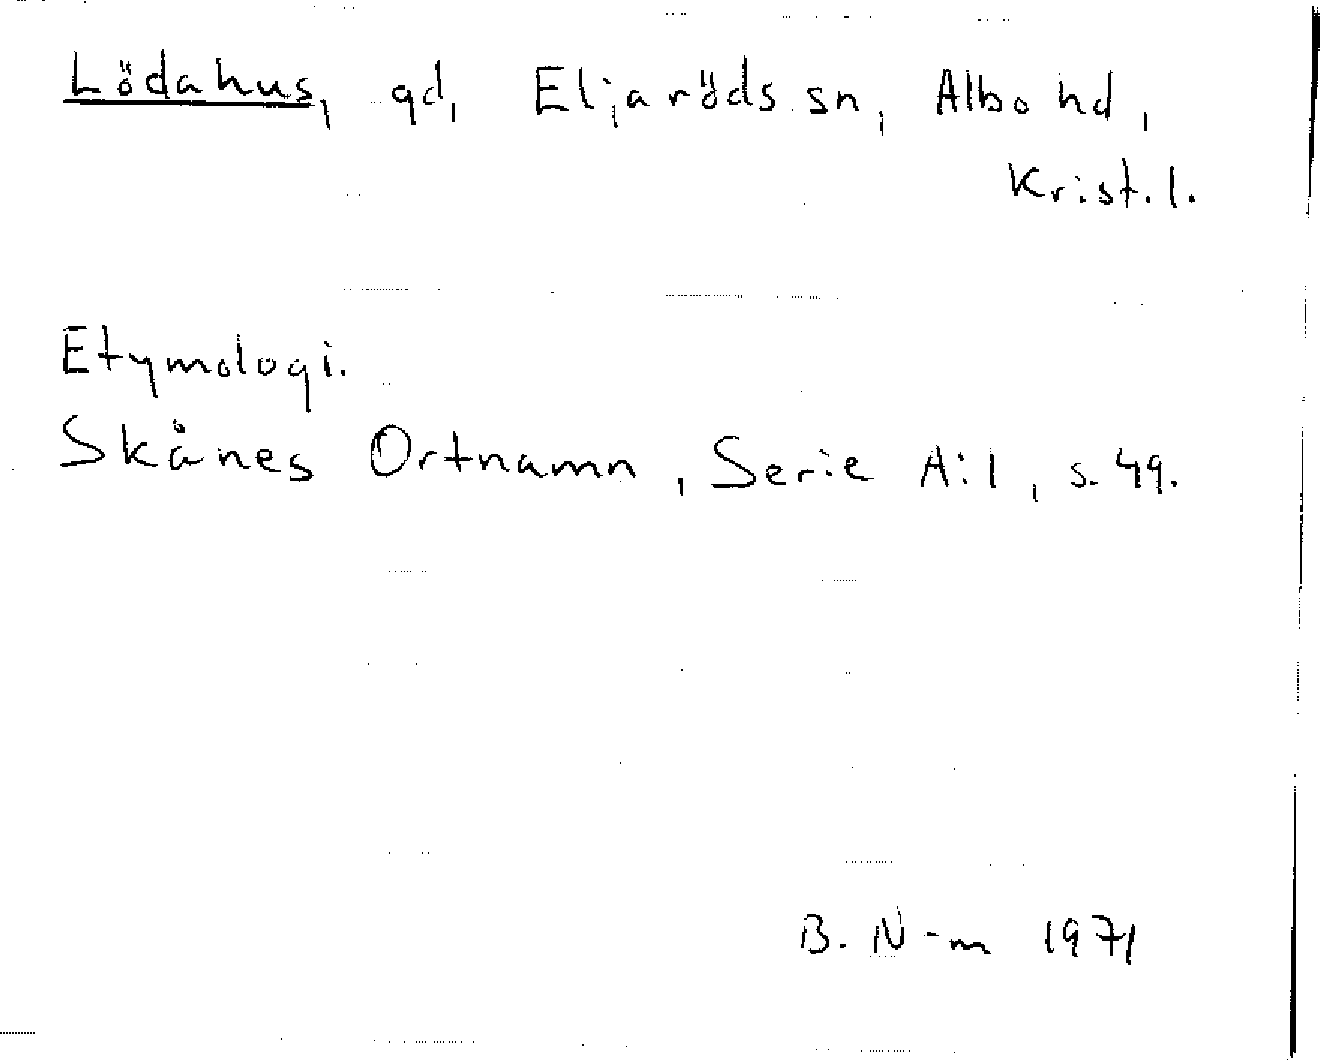 Lödahus, gd, Eljaröds sn, Albo hd,
Krist. l.
Etymologi.
Skånes Ortnamn, Serie A:1, s. 49.
B. N-m 1971